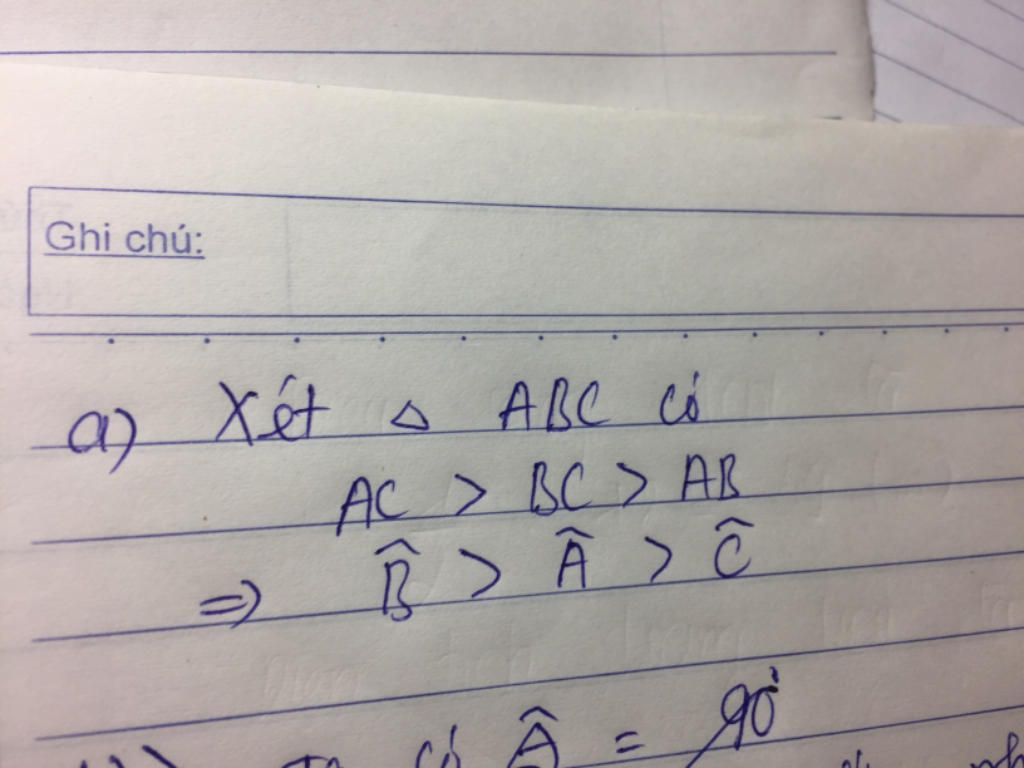 Ghi chú:
a) Xét △ ABC có
AC > BC > AB
=> B̂ > Â > Ĉ
có Â = 90°